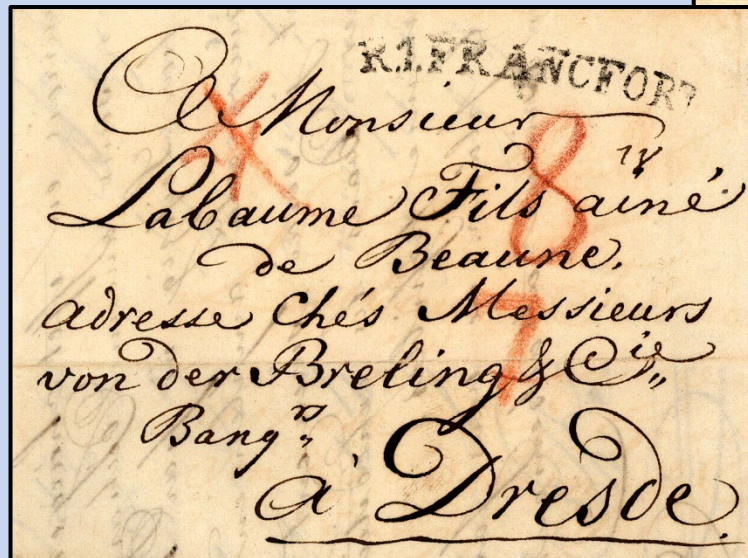 R.1.FRANCFORT
A Monsieur
8
Labaume Fils ainé
de Beaune,
adresse Chés Messieurs
7
von der Breling & Cie„
Banqrs
à Dresde.